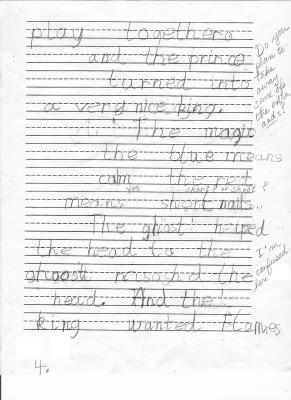 play together.
and the prince
turned into
a very nice king.
The magic
the blue means
calm the red
yes short? or shoot?
means short nails.
The ghost helped
the head to the
the
head. And the
king wanted flames
Do you
plan to
take
away
some of
the extra
ands?
I'm
confused
here
4.